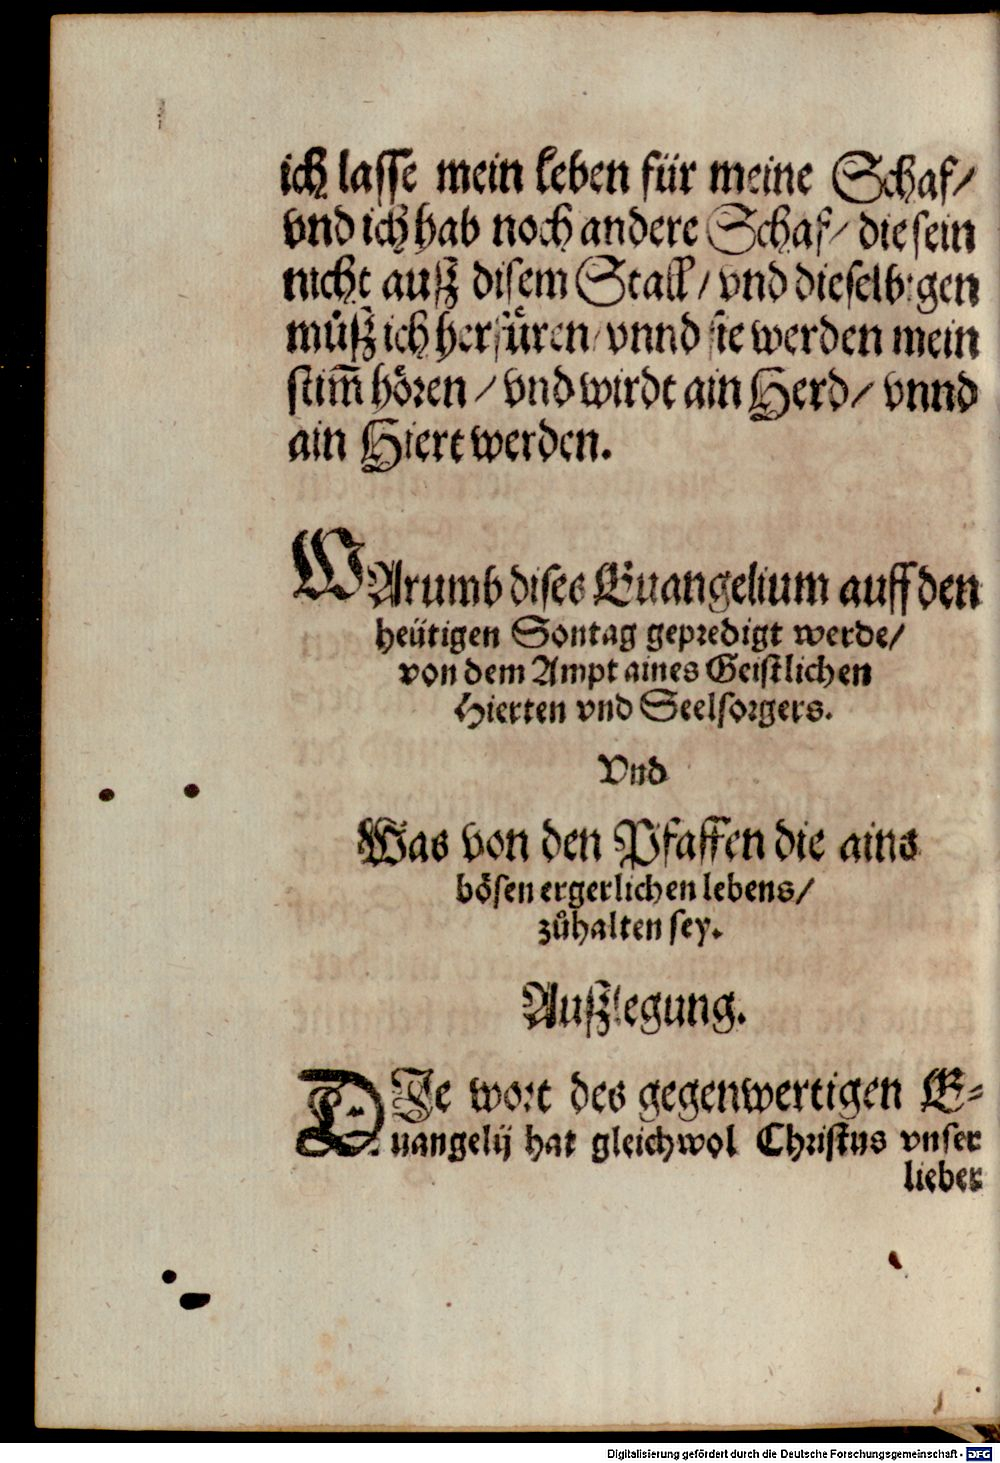 ich lasse mein leben für meine Schaf/
vnd ich hab noch andere Schaf/ die sein
nicht auß disem Stall/ vnd dieselbigen
müß ich herfüren/ vnnd sie werden mein
stim̄ hören/ vnd wirdt ain Herd/ vnnd
ain Hiert werden.
WArumb dises Euangelium auff den
heütigen Sontag gepredigt werde/
von dem Ampt aines Geistlichen
Hierten vnd Seelsorgers.
Vnd
Was von den Pfaffen die ains
bösen ergerlichen lebens/
zůhalten sey.
Außlegung.
DJe wort des gegenwertigen E-
uangelij hat gleichwol Christus vnser
lieber
Digitalisierung gefördert durch die Deutsche Forschungsgemeinschaft - DFG